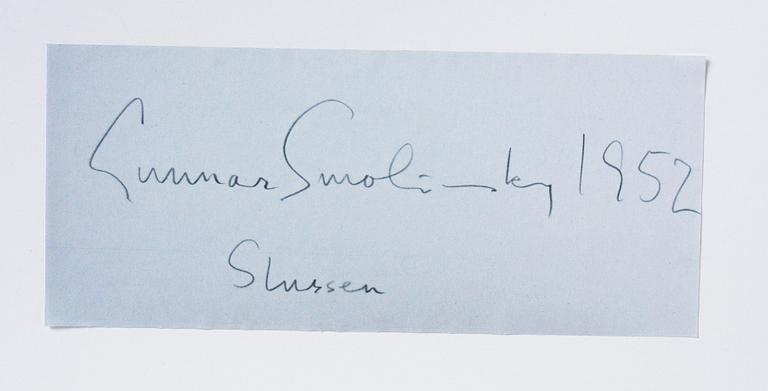 Gunnar Smoliansky 1952
Slussen